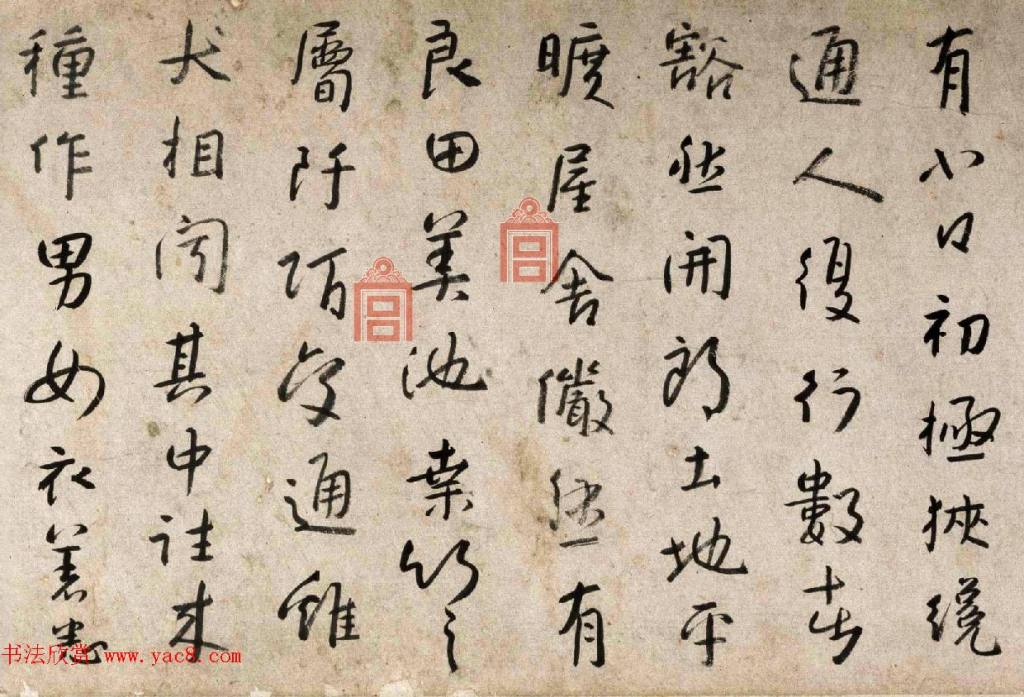 有小口初極狹纔
通人復行數十步
豁然開朗土地平
曠屋舍儼然有
良田美池桑竹之
屬阡陌交通雞
犬相聞其中往來
種作男女衣著悉
书法欣赏 www.yac8.com